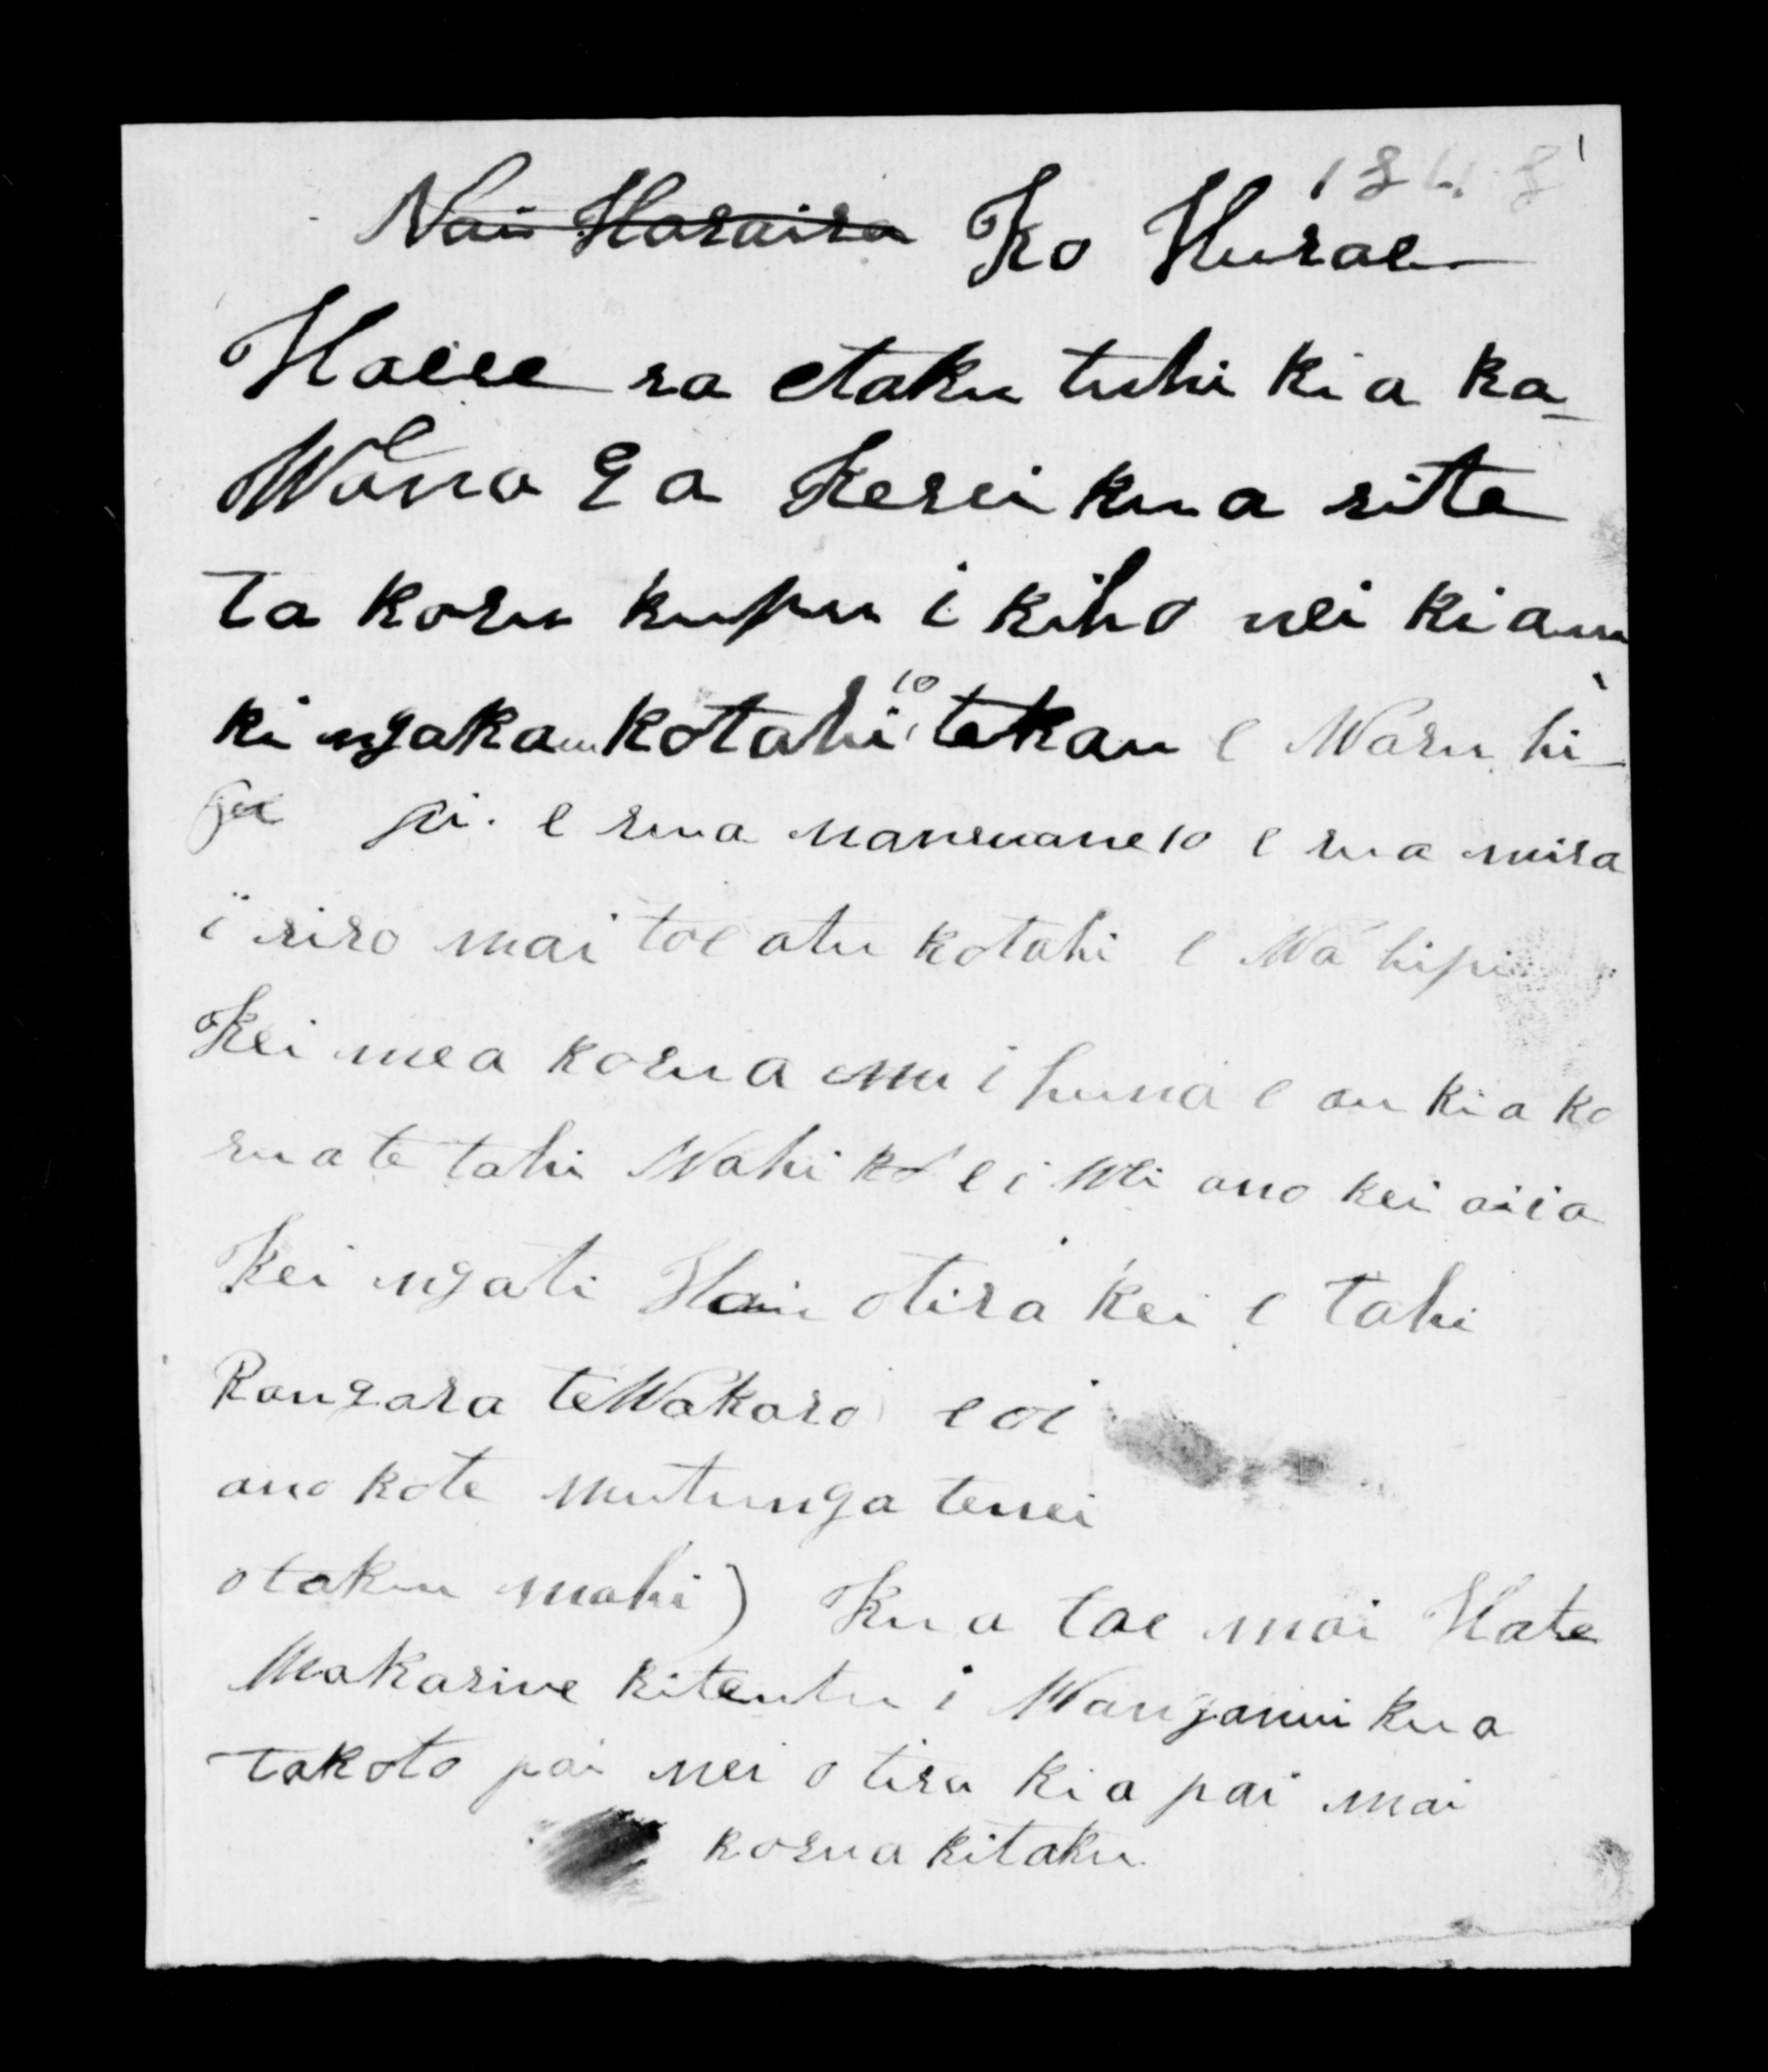 1848
Nai Horaira Ko Hurae
Haere ra etaku tuhi ki a ka-
Wana ga Kerei kua rite
ta koru kupu i kiho nei ki au
ki nga kau kotahi 10 tekau e Waru hi-
pi. e rua nanenane 10 e rua mira
i riro mai toe atu kotahi e Wa hipi
Kei mea korua mu i huna e au ki a ko
rua te tahi Wahi e i Wi ano kei aia
Kei ngati Hau otira kei e tahi
Rangara te Wakaro eoi
ano kote mutunga tenei
otaku mahi) Kua tae mai Hate
Makarine kitentu i Wanganui kua
takoto pai nei otira kia pai mai
korua kitaku